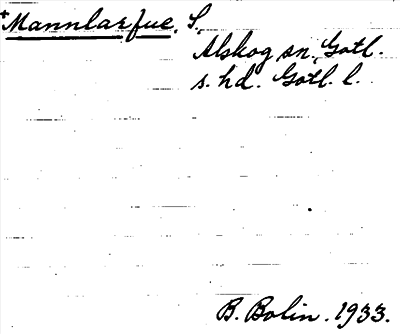 +Mannlarfue. S,
Alskog sn, Gotl.
s. hd. Gotl. l.
B. Bolin. 1933.